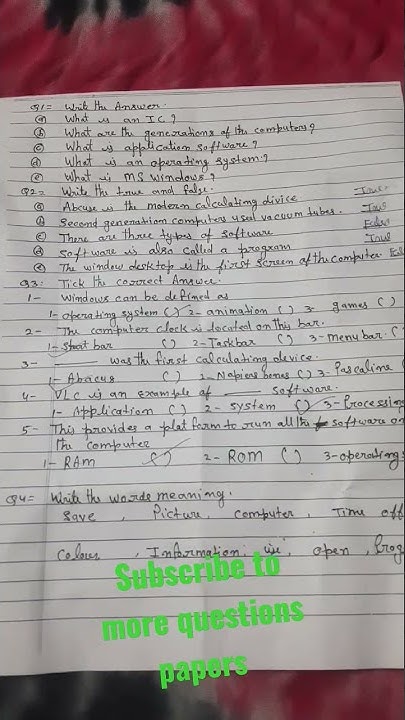 Q1= Write the Answer.
(a) What is an IC?
(b) What are the generations of the computers?
(c) What is application software?
(d) What is an operating system?
(e) What is MS Windows?
Q2= Write the true and false.
(a) Abcuse is the modern calculating divice True
(b) Second generation computers used vacuum tubes. True
(c) There are three types of software False
(d) Software is also called a program True
(e) The window desktop is the first screen of the computer Fals
Q3: Tick the correct Answer.
1- Windows can be defined as
1- operating system ( ) 2- animation ( ) 3- games ( )
2- The computer clock is located on this bar.
1- Start bar ( ) 2- Taskbar ( ) 3- menu bar (
3- ____ was the first calculating device.
1- Abacus ( ) 2- Napiers bones ( ) 3- Pascaline (
4- VLC is an example of ____ software.
1- Application ( ) 2- system ( ) 3- Processing
5- This provides a platform to run all the software on
the computer
1- RAm ( ) 2- ROM ( ) 3- operating
Q4= Write the words meaning.
Save , Picture, computer, Time off
Colour , Information, open, Prog
Subscribe to
more questions
papers